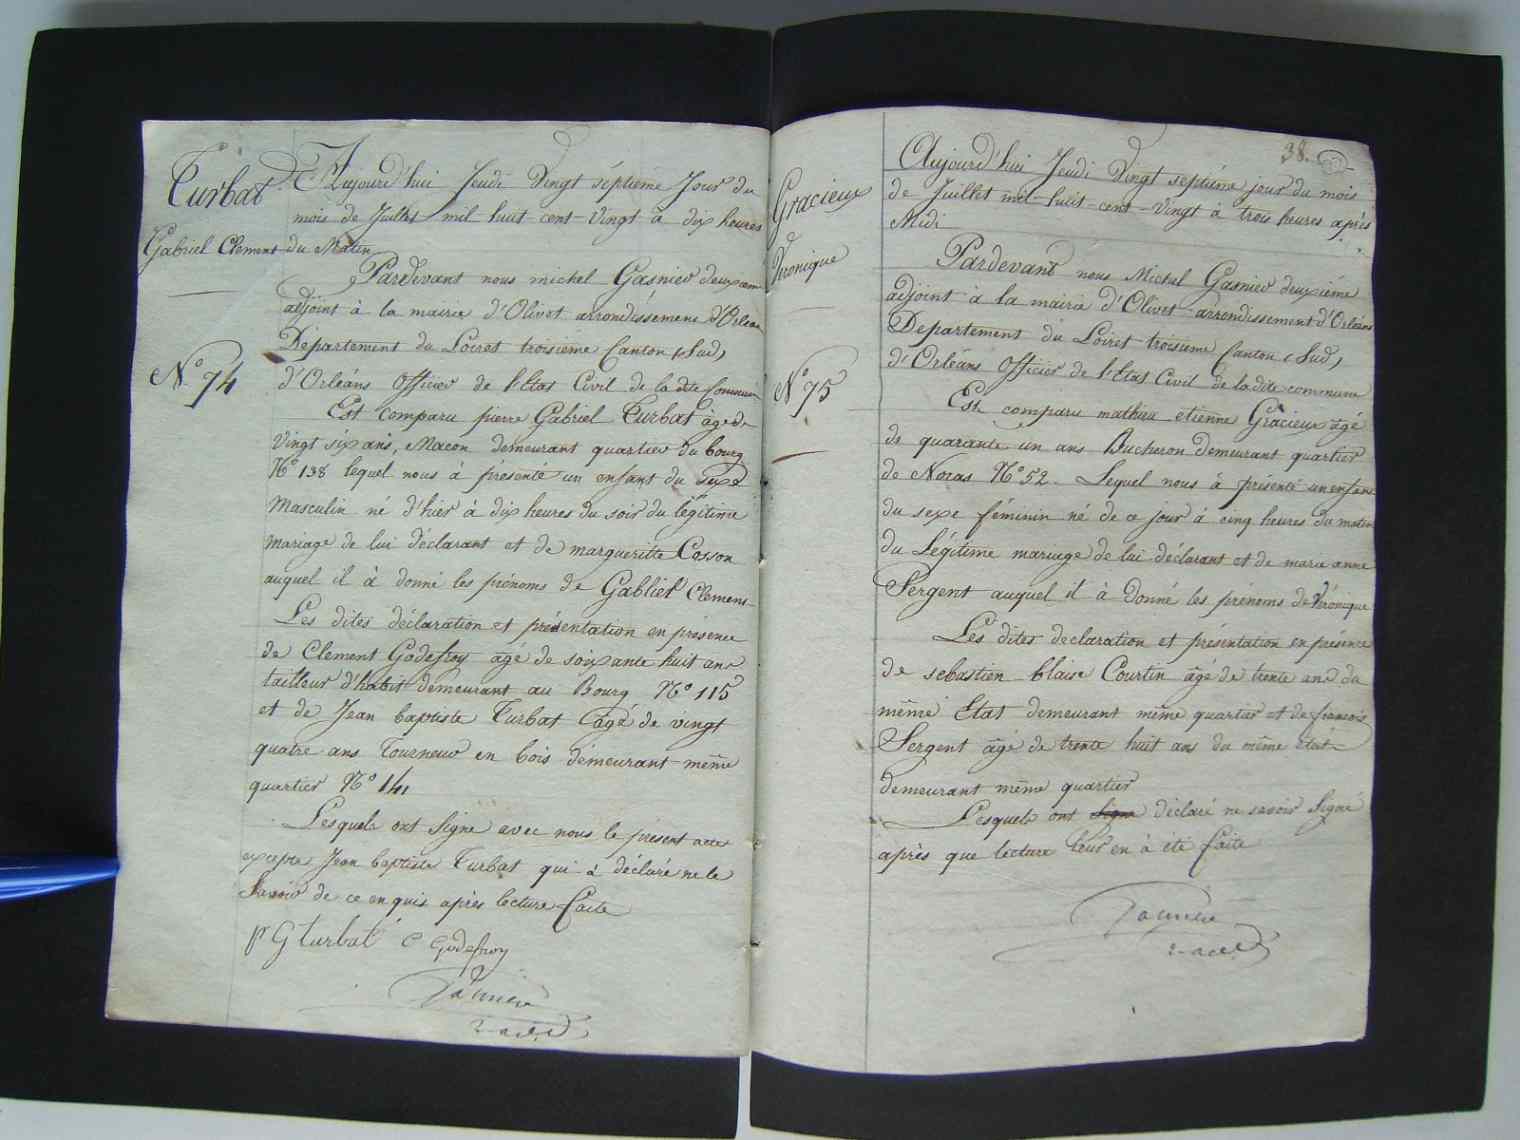 Turbat
Gabriel Clement
N.° 74
Aujourd'hui Jeudi Vingt séptième Jour du
mois de Juillet mil huit cent Vingt à dix heures
du Matin
Pardevant nous michel Gasnier deuxiem
adjoint à la mairie d'Olivet arrondissement d'Orléans
Département du Loiret troisieme Canton (Sud)
d'Orléans Officier de l'Etat Civil de la dite Commune
Est comparu pierre Gabriel Turbat âgé de
Vingt six ans, Macon demeurant quartier du bourg
N.° 138 lequel nous à présenté un enfant du sexe
Masculin né d'hier à dix heures du soir du légitime
mariage de lui déclarant et de margueritte Cosson
auquel il à donné les prénoms de Gabliel Clement
Les dites déclaration et présentation en présence
de Clement Godefroy âgé de soixante huit ans
tailleur d'habit demeurant au Bourg N.° 115
et de Jean baptiste Turbat âgé de vingt
quatre ans Tourneur en bois demeurant même
quartier N.° 141
Lesquels ont Signé avec nous le présent acte
excepté Jean baptiste Turbat qui à déclaré ne le
Savoir de ce enquis après lecture faite
p G turbat C Godefroy
Gasnier
2.e adj.
38.
Gracieux
Véronique
N.° 75
Aujourd'hui Jeudi Vingt septiéme jour du mois
de Juillet mil-huit-cent-Vingt à trois heures après
Midi
Pardevant nous Michel Gasnier deuxième
adjoint à la mairie d'Olivet arrondissement d'Orléans
Département du Loiret troisieme Canton (Sud)
d'Orléans Officier de l'Etat Civil de la dite commune
Est comparu mathieu etienne Gracieux âgé
de quarante un ans Bucheron demeurant quartier
de Noras N.° 52. Lequel nous à présenté un enfant
du sexe féminin né de ce jour à cinq heures du matin
du Légitime mariage de lui déclarant et de marie anne
Sergent auquel il à donné les prénoms de Véronique
Les dites declaration et présentation en présence
de sebastien blaise Courtin âgé de trente ans du
même Etat demeurant même quartier et de francois
Sergent âgé de trente huit ans du même état
demeurant même quartier
Lesquels ont signé déclaré ne savoir Signé
après que lecture leur en à été faite
Gasnier
2.e adj.